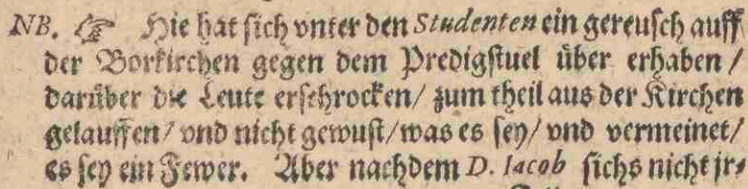 NB. ☞ Hie hat sich vnter den Studenten ein gereusch auff
der Borkirchen gegen dem Predigstuel über erhaben /
darüber die Leute erschrocken / zum theil aus der Kirchen
gelauffen / vnd nicht gewust / was es sey / vnd vermeinet /
es sey ein Fewer. Aber nachdem D. Iacob sichs nicht jr⸗